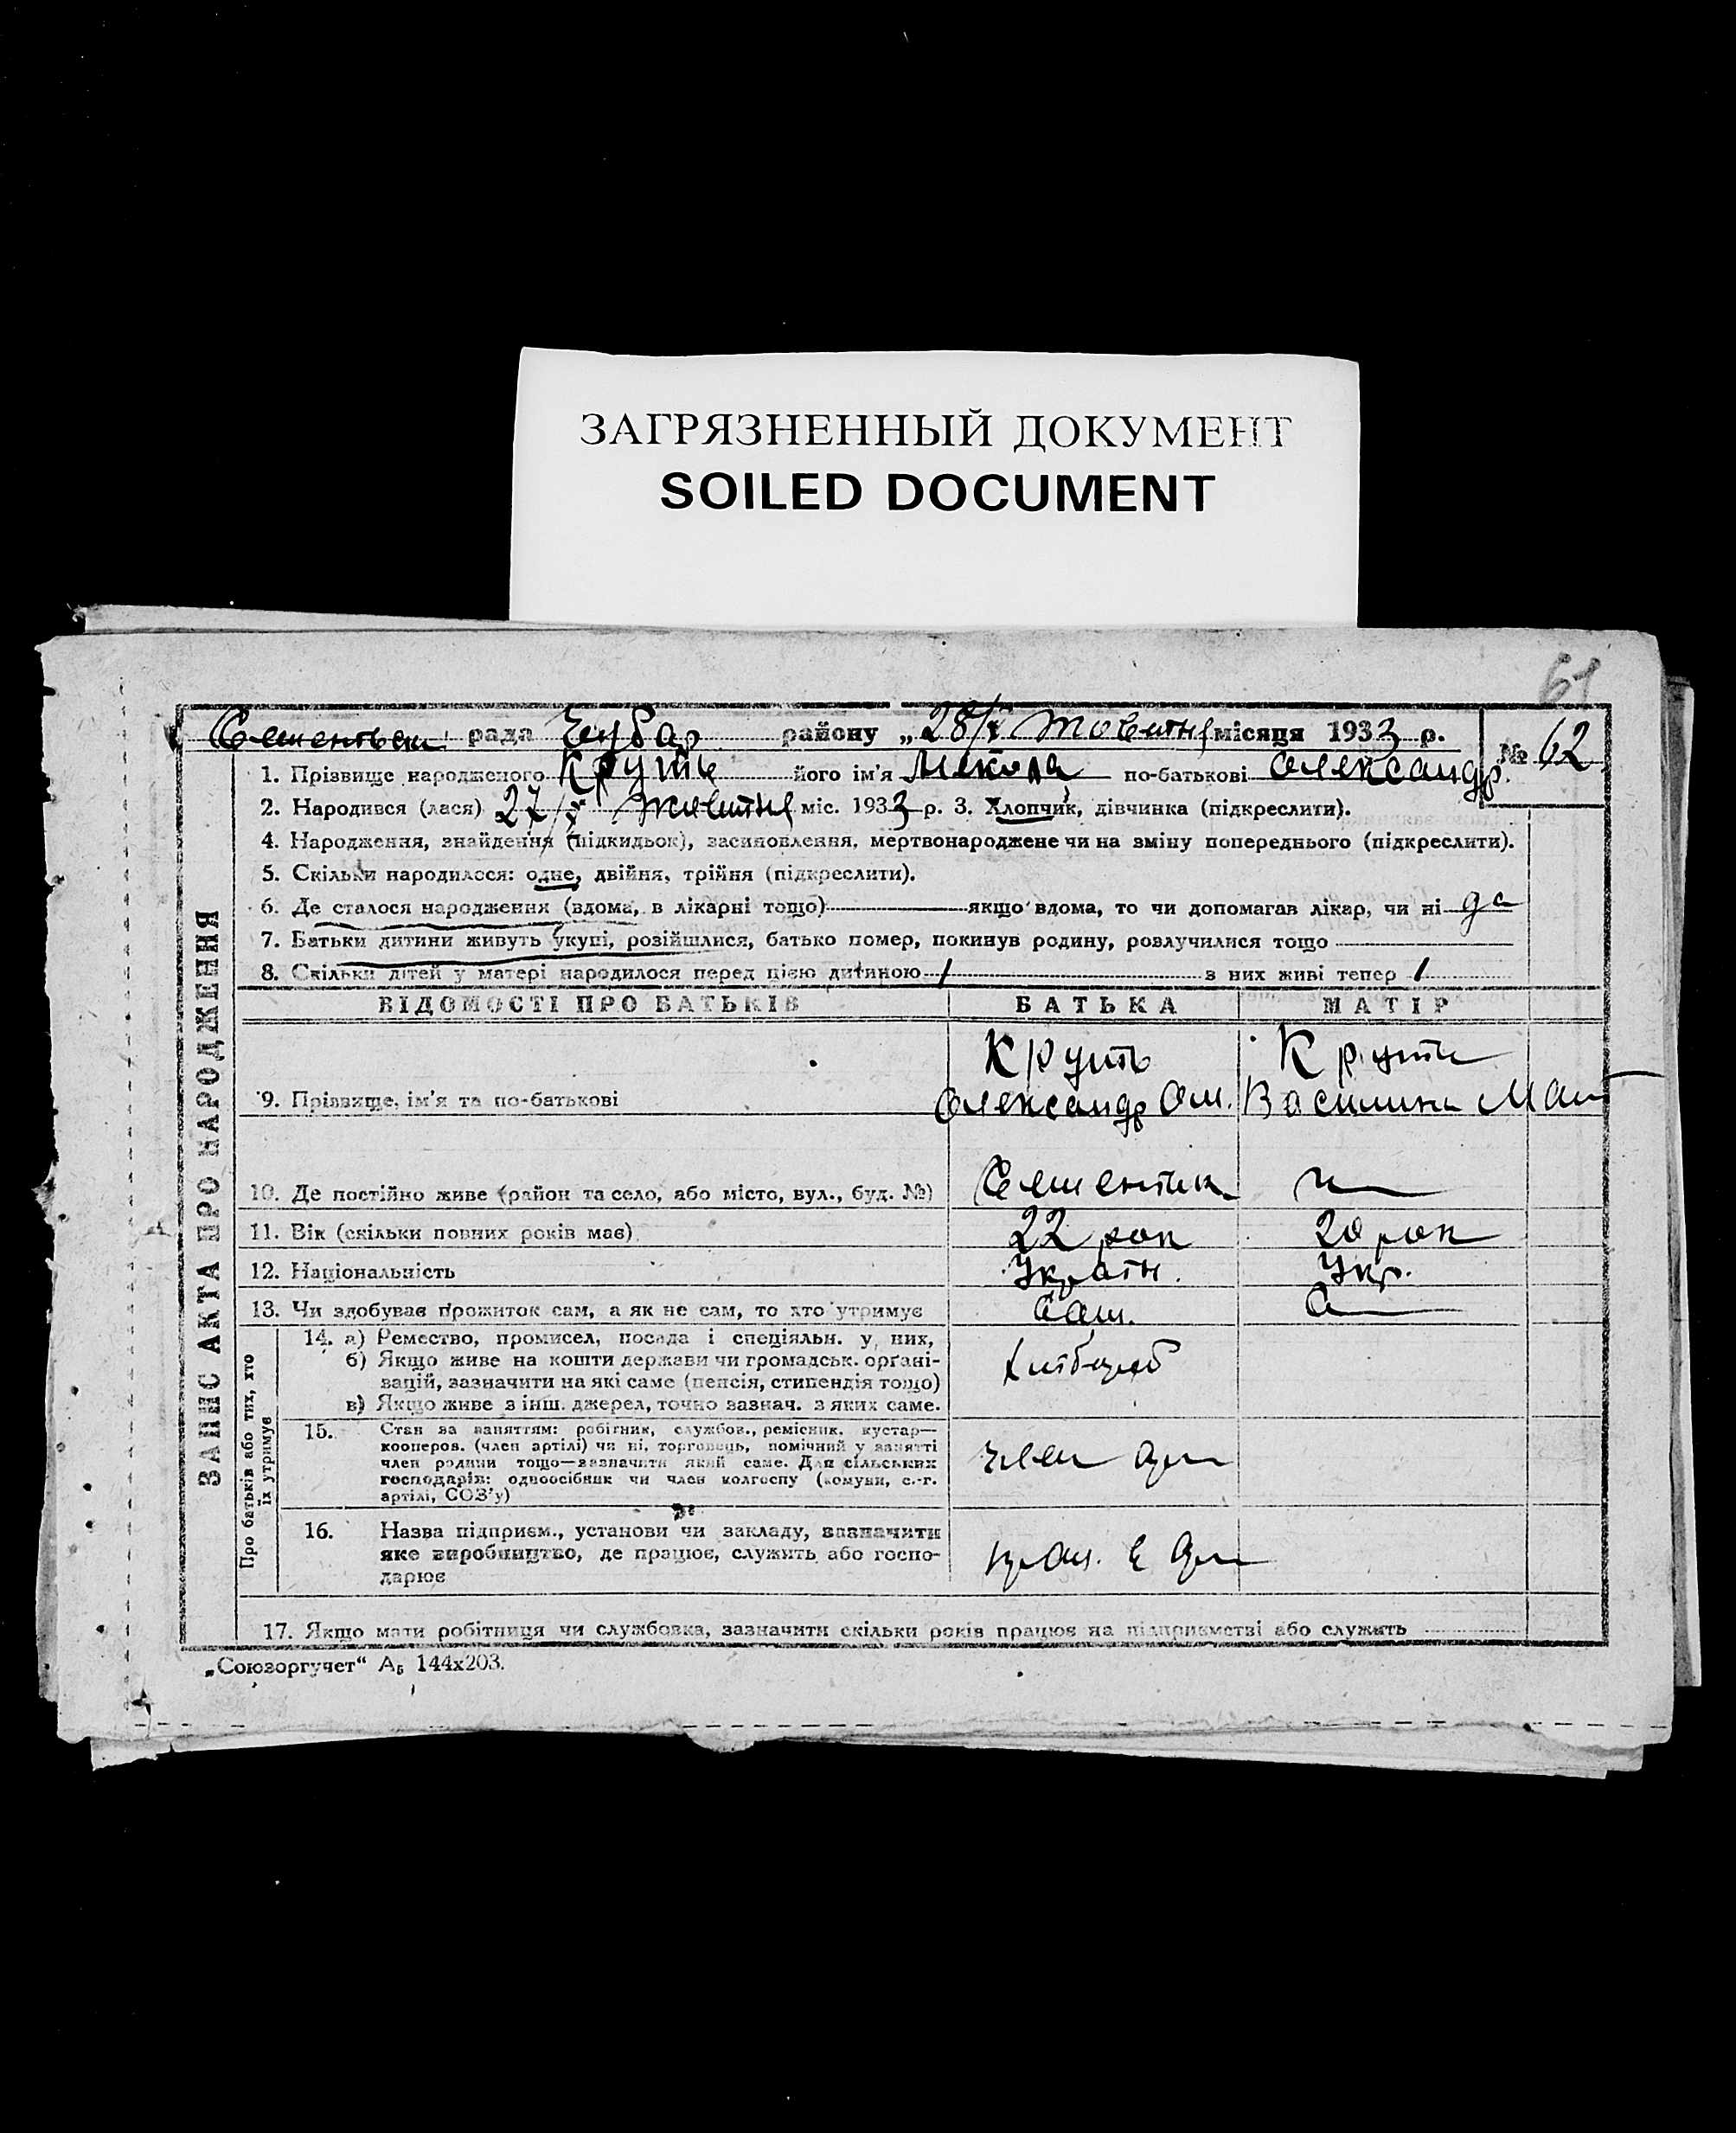 ЗАГРЯЗНЕННЫЙ ДОКУМЕНТ
SOILED DOCUMENT
61
рада Чубар району „28/X жовтня місяця 1933 р. № 62
1. Прізвище народженого Круть його ім'я Микола по-батькові Олександр.
2. Народився (лася) 27/X жовтня міс. 1933 р. 3. Хлопчик, дівчинка (підкреслити).
4. Народження, знайдення (підкидьок), засиновлення, мертвонароджене чи на зміну попереднього (підкреслити).
5. Скільки народилося: одне, двійня, трійня (підкреслити).
6. Де сталося народження (вдома, в лікарні тощо) якщо вдома, то чи допомагав лікар, чи ні да
7. Батьки дитини живуть укупі, розійшлися, батько помер, покинув родину, розлучилися тощо
8. Скільки дітей у матері народилося перед цією дитиною 1 з них живі тепер 1
ЗАПИС АКТА ПРО НАРОДЖЕННЯ
ВІДОМОСТІ ПРО БАТЬКІВ БАТЬКА МАТІР
Круть Круть
9. Прізвище, ім'я та по-батькові Олександр Василина
10. Де постійно живе (район та село, або місто, вул., буд. №)
11. Вік (скільки повних років має) 22 рок 20 рок
12. Національність Україн. Укр.
13. Чи здобуває прожиток сам, а як не сам, то хто утримує сам.
Про батьків або тих, хто
їх утримує
14. а) Ремество, промисел, посада і спеціяльн. у них,
б) Якщо живе на кошти держави чи громадськ. органі-
зацій, зазначити на які саме (пенсія, стипендія тощо) Хлібороб
в) Якщо живе з інш. джерел, точно зазнач. з яких саме.
15. Стан за заняттям: робітник, службов., ремісник, кустар—
кооперов. (член артілі) чи ні, торговець, помічний у занятті
член родини тощо—зазначити який саме. Для сільських член
господарів: одноосібник чи член колгоспу (комуни, с.-г.
артілі, СОЗ'у)
16. Назва підприєм., установи чи закладу, зазначити
яке виробництво, де працює, служить або госпо-
дарює
17. Якщо мати робітниця чи службовка, зазначити скільки років працює на підприємстві або служить
„Союзоргучет" А₅ 144х203.